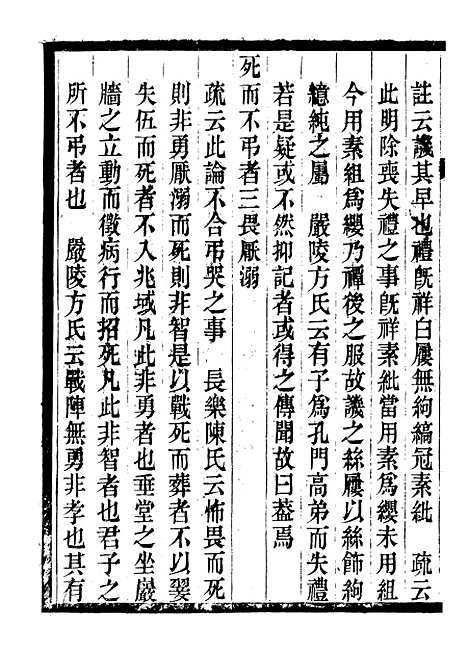 註云譏其早也禮旣祥白屨無絇縞冠素紕　疏云
此明除喪失禮之事旣祥素紕當用素爲纓未用組
今用素組爲纓乃禫後之服故譏之絲屨以絲飾絇
繶純之屬　嚴陵方氏云有子爲孔門高弟而失禮
若是疑或不然抑記者或得之傳聞故曰葢焉
死而不弔者三畏厭溺
疏云此論不合弔哭之事　長樂陳氏云怖畏而死
則非勇厭溺而死則非智是以戰死而葬者不以翣
失伍而死者不入兆域凡此非勇者也垂堂之坐巖
牆之立動而徵病行而招死凡此非智者也君子之
所不弔者也　嚴陵方氏云戰陣無勇非孝也其有